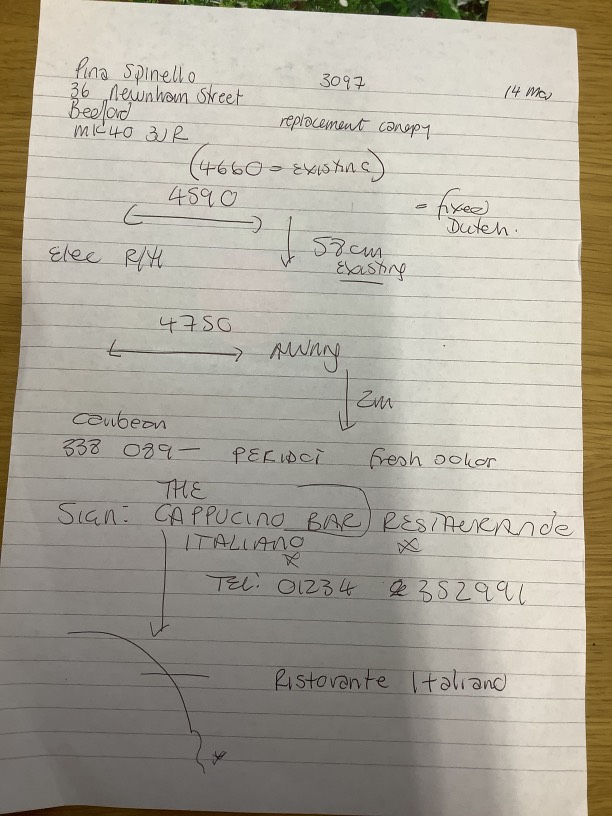 Pina Spinello
3097
14 Mav
36 Newnham Street
Bedford
MK40 3JR
replacement canopy
(4660 = EXISTING)
4590
= fixed
Dutch.
58cm
Existing
Elec R/H
4750
AWNNG
2m
338 089 —
fresh
THE
SIGN: CAPPUCINO BAR
ITALIANO
TEL: 01234 352991
Ristorante Italiano